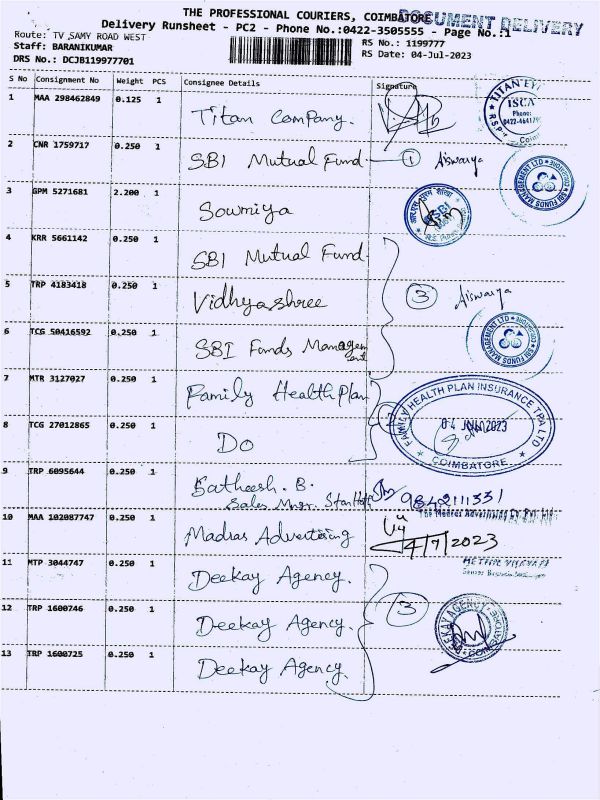 THE PROFESSIONAL COURIERS, COIMBATORE
DOCUMENT DELIVERY
Delivery Runsheet - PC2 - Phone No.:0422-3505555 - Page No.:1
Route: TV ,SAMY ROAD WEST
Staff: BARANIKUMAR
DRS No.: DCJB119977701
RS No.: 1199777
RS Date: 04-Jul-2023
S No Consignment No Weight PCS Consignee Details Signature
1 MAA 298462849 0.125 1 Titan Company.
TITAN EY
ISCA
Phone:
2 CNR 1759717 0.250 1 SBI Mutual Fund 1 Aiswarya
SBI FUNDS MANAGEMENT LTD COIMBATORE
3 GPM 5271681 2.200 1 Sowmiya
SBI
4 KRR 5661142 0.250 1 SBI Mutual Fund
5 TRP 4183418 0.250 1 Vidhyashree 3 Aiswarya
6 TCG 50416592 0.250 1 SBI Funds Management
SBI FUNDS MANAGEMENT LTD COIMBATORE
7 MTR 3127027 0.250 1 Family Health Plan
FAMILY HEALTH PLAN INSURANCE TPA LTD
04 JUL 2023
COIMBATORE
8 TCG 27012865 0.250 1 Do
9 TRP 6095644 0.250 1 Satheesh. B.
Sales Mngr. Star Health 9842111331
The Madras Advertising Co. Pvt. Ltd
10 MAA 102087747 0.250 1 Madras Advertising
4/7/2023
11 MTP 3044747 0.250 1 Deekay Agency.
12 TRP 1600746 0.250 1 Deekay Agency. 3
DEEKAY AGENCY
13 TRP 1600725 0.250 1 Deekay Agency.